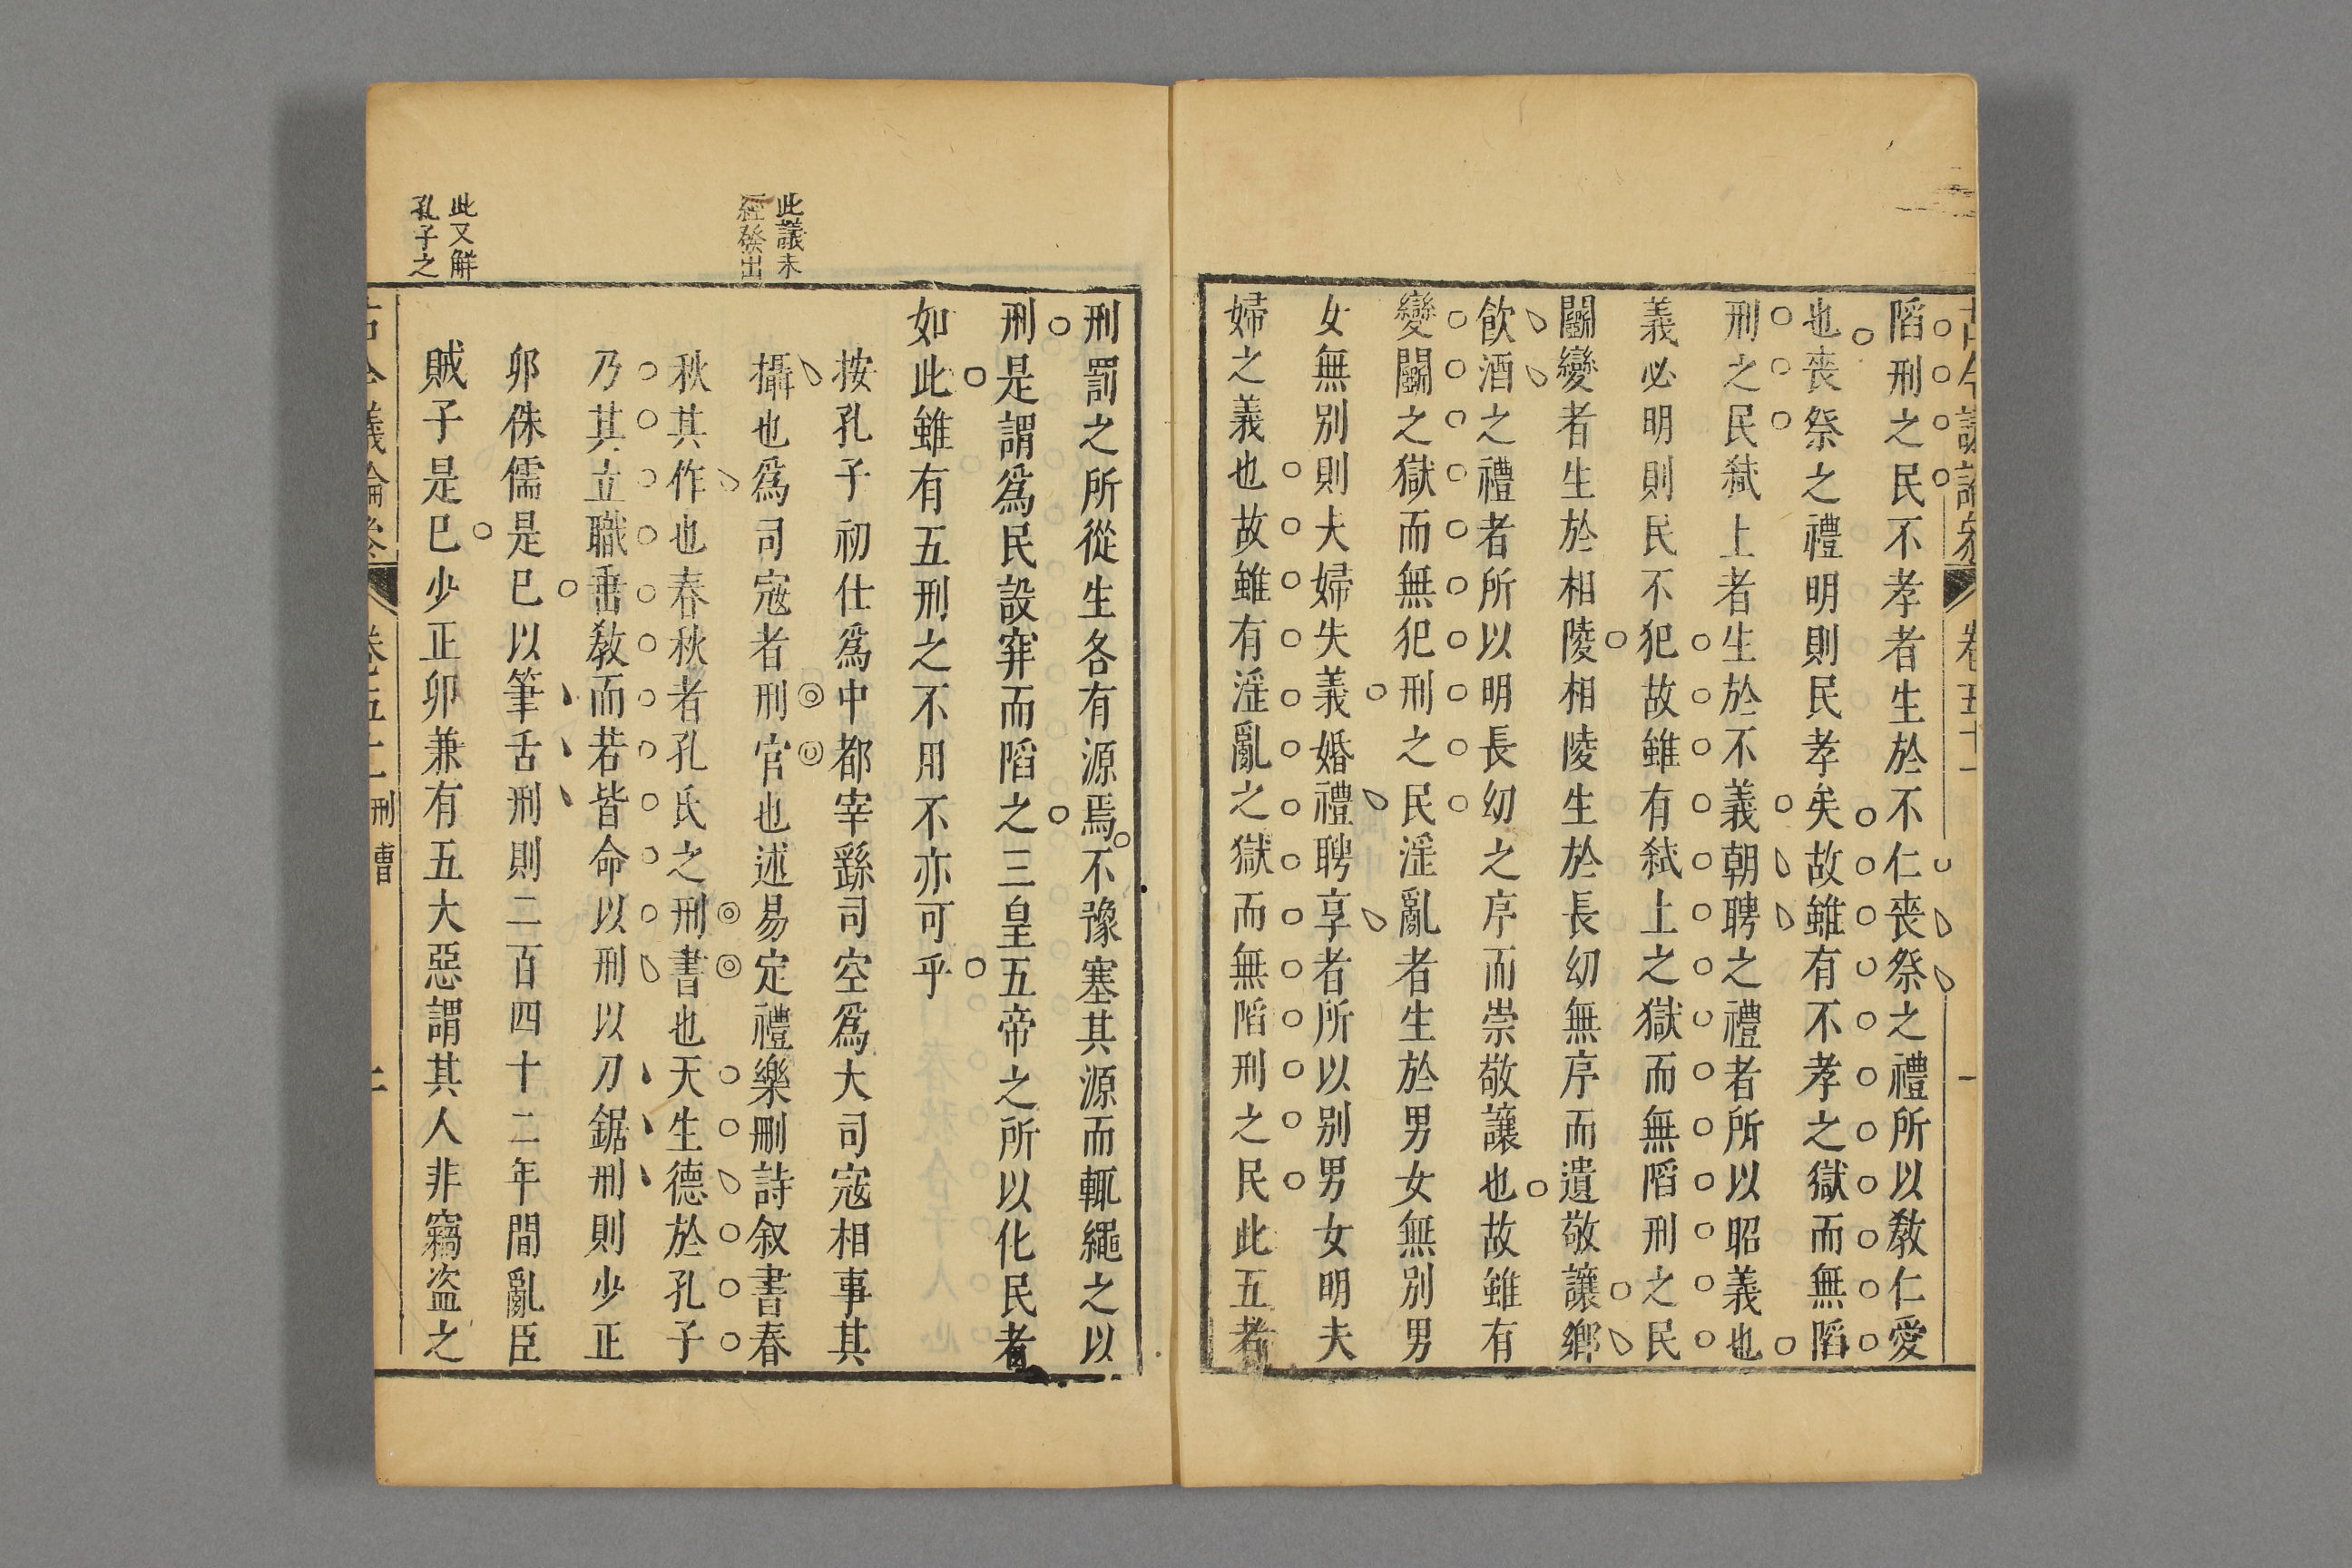 陷刑之民不孝者生於不仁喪祭之禮所以敎仁愛
也喪祭之禮明則民孝矣故雖有不孝之獄而無陷
刑之民弑上者生於不義朝聘之禮者所以昭義也
義必明則民不犯故雖有弑上之獄而無陷刑之民
鬭變者生於相陵相陵生於長幼無序而遺敬讓鄉
飮酒之禮者所以明長幼之序而崇敬讓也故雖有
變鬭之獄而無犯刑之民淫亂者生於男女無別男
女無別則夫婦失義婚禮聘享者所以別男女明夫
婦之義也故雖有淫亂之獄而無陷刑之民此五者
刑罰之所從生各有源焉不豫塞其源而輒繩之以
刑是謂爲民設穽而陷之三皇五帝之所以化民者
如此雖有五刑之不用不亦可乎
此議未
經發出
按孔子初仕爲中都宰繇司空爲大司寇相事其
攝也爲司寇者刑官也述易定禮樂刪詩叙書春
秋其作也春秋者孔氏之刑書也天生德於孔子
乃其立職垂敎而若皆命以刑以刀鋸刑則少正
卯侏儒是已以筆舌刑則二百四十二年間亂臣
此又解
孔子之
賊子是已少正卯兼有五大惡謂其人非竊盗之
刑曹